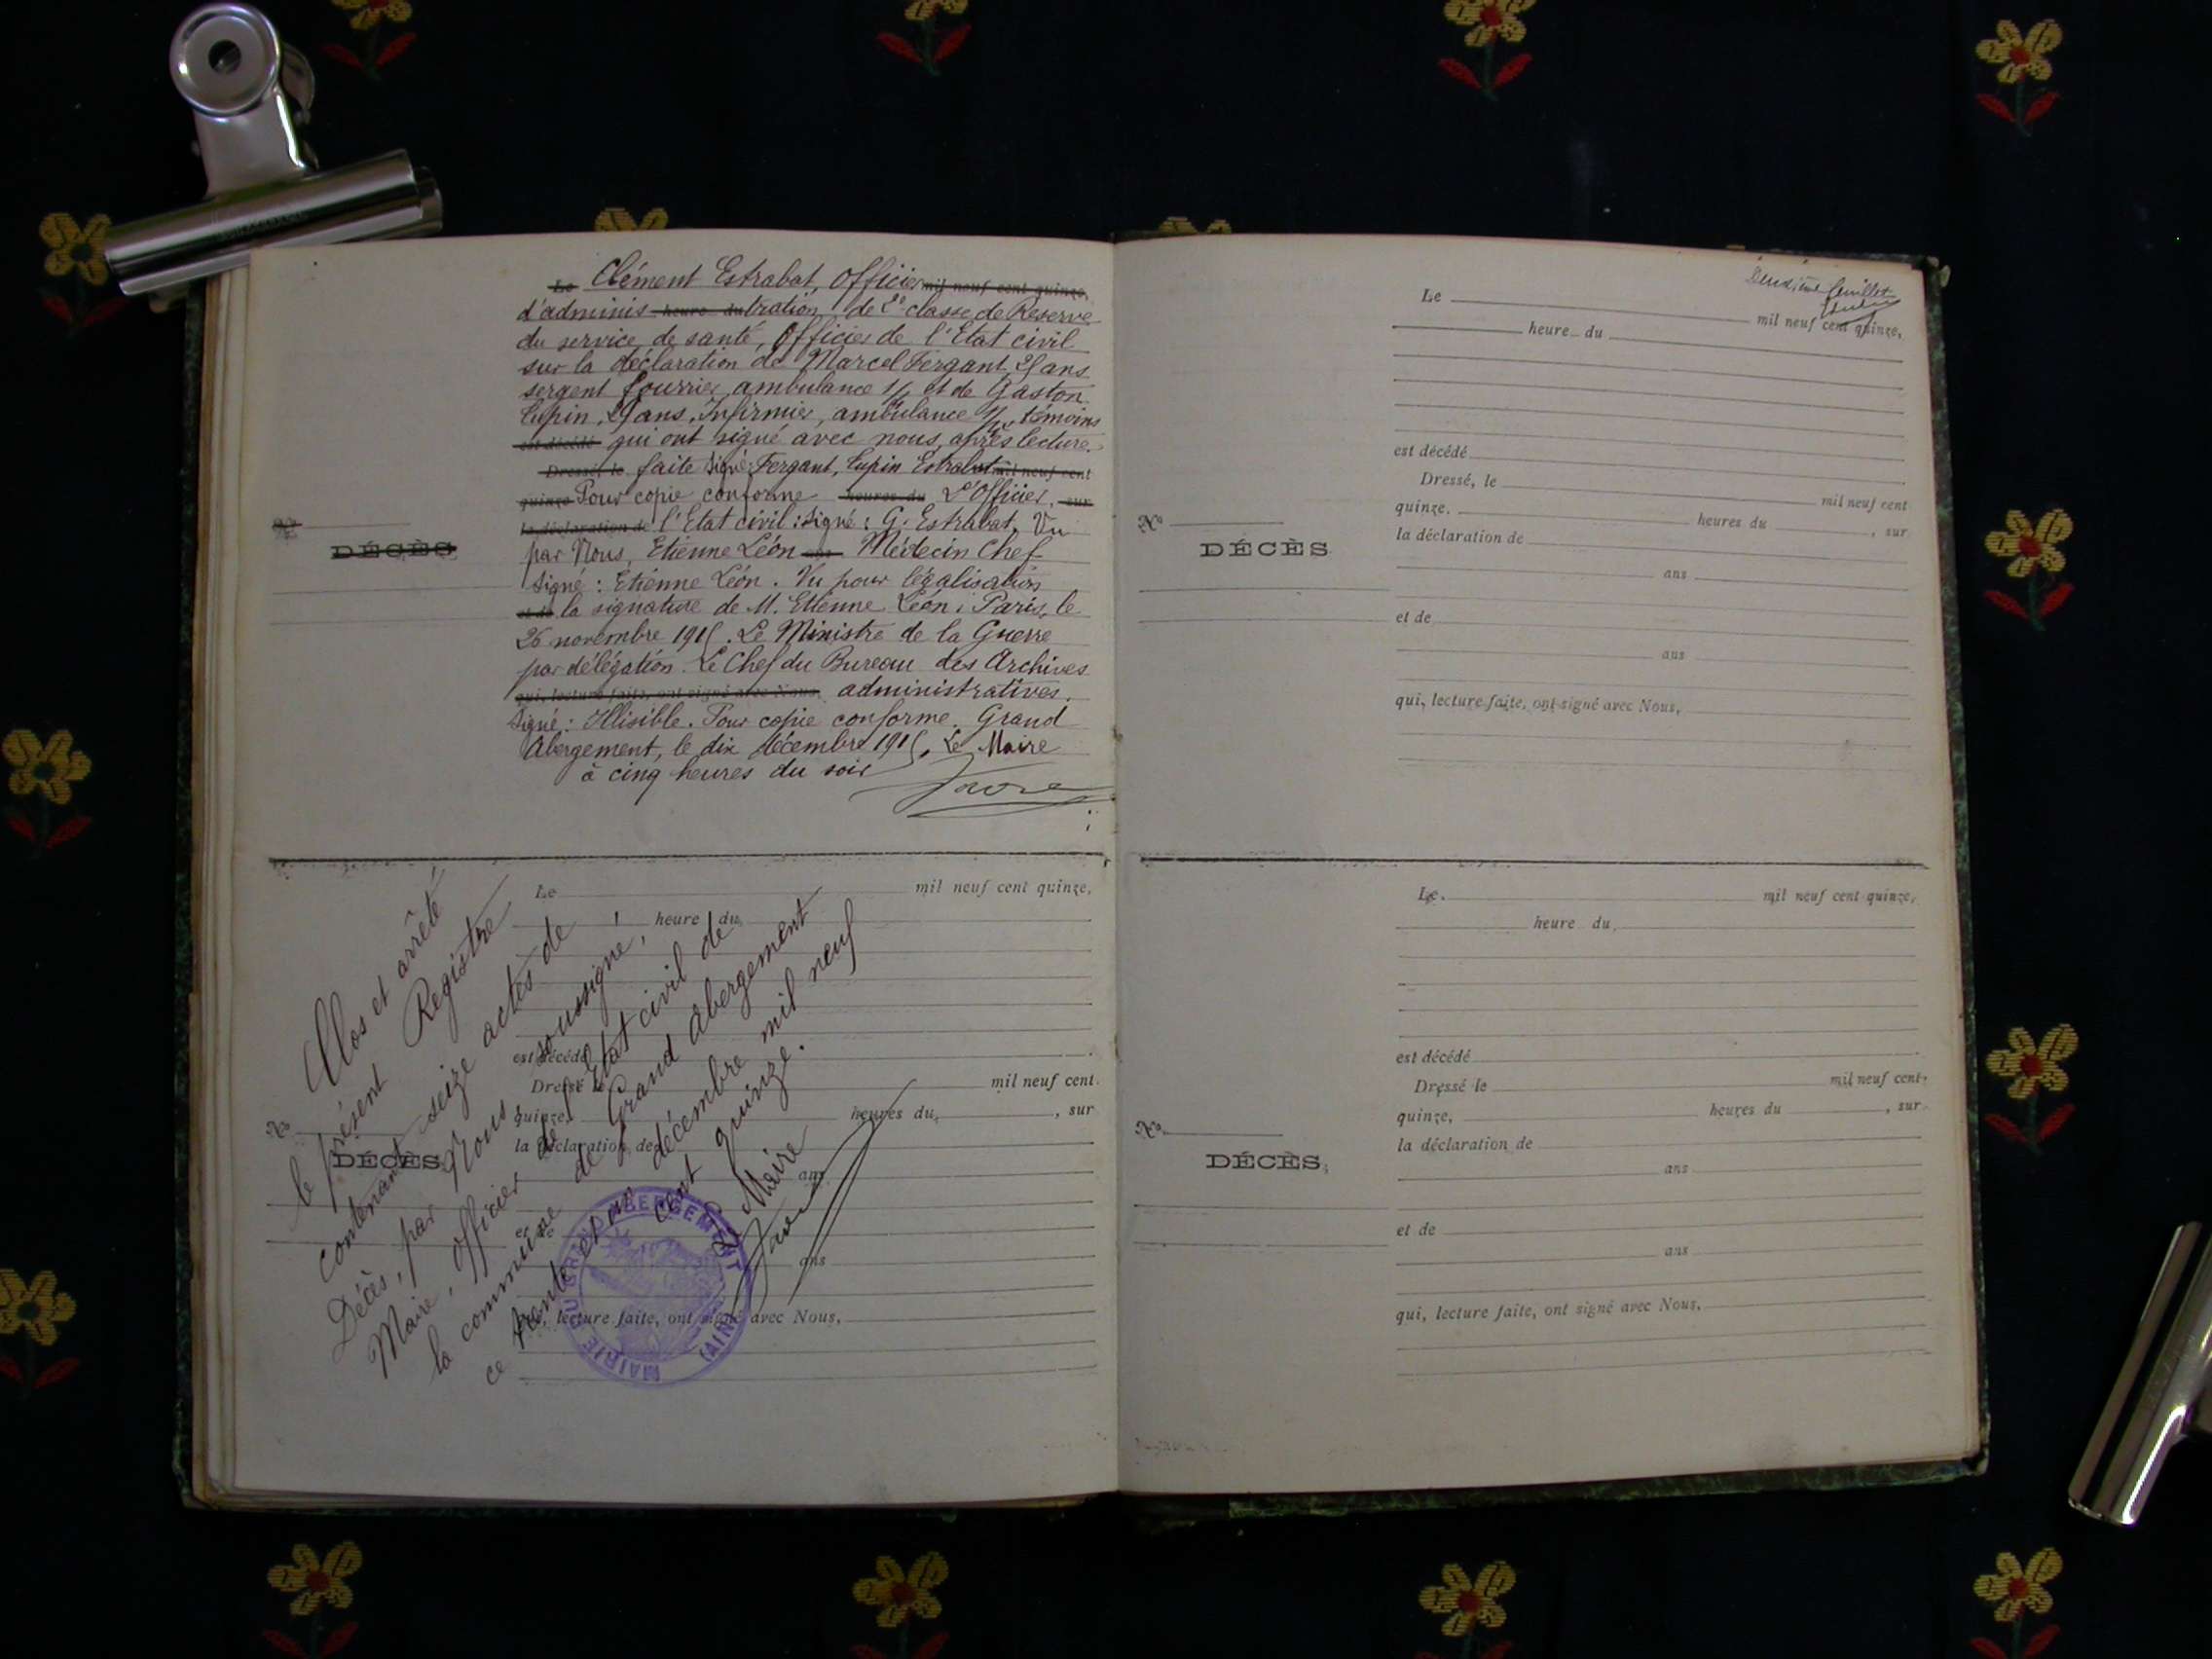 Le Clément Estrabat, Officier mil neuf cent quinze,
d'adminis heure du tration de 2e classe de Réserve
du service de santé, Officier de l'Etat civil
sur la déclaration de Marcel Fergant, 25 ans
sergent fourrier ambulance et de Gaston
Lupin, 29 ans, Infirmier, ambulance témoins
est décédé qui ont signé avec nous, après lecture.
Dressé, le faite Signé: Fergant, Lupin Estrabat mil neuf cent
quinze Pour copie conforme heures du L'Officier, sur
la déclaration de l'Etat civil : Signé : G. Estrabat. Vu
par Nous, Etienne Léon ans Médecin Chef
Signé : Etienne Léon. Vu pour légalisation
et de la signature de M. Etienne Léon. Paris, le
26 novembre 1915. Le Ministre de la Guerre
par délégation. Le Chef du Bureau des Archives
qui, lecture faite, ont signé avec Nous, administratives.
Signé : Illisible. Pour copie conforme. Grand
Abergement, le dix décembre 1915. Le Maire
à cinq heures du soir
Favre
No
DÉCÈS
Le mil neuf cent quinze,
heure du
est décédé
Dressé le mil neuf cent
quinze, heures du , sur
la déclaration de
ans
et de
ans
qui, lecture faite, ont signé avec Nous,
No
DÉCÈS
Clos et arrêté
le présent Registre
contenant seize actes de
Décès, par Nous soussigné,
Maire, officier de l'Etat civil de
la commune de Grand Abergement
ce trente et un décembre mil neuf
cent quinze.
Le Maire
Favre
MAIRIE DU GRAND ABERGEMENT
(AIN)
Deuxième feuillet
Le mil neuf cent quinze,
heure du
est décédé
Dressé, le mil neuf cent
quinze, heures du , sur
la déclaration de
ans
et de
ans
qui, lecture faite, ont signé avec Nous,
No
DÉCÈS
Le mil neuf cent quinze,
heure du
est décédé
Dressé le mil neuf cent
quinze, heures du , sur
la déclaration de
ans
et de
ans
qui, lecture faite, ont signé avec Nous,
No
DÉCÈS